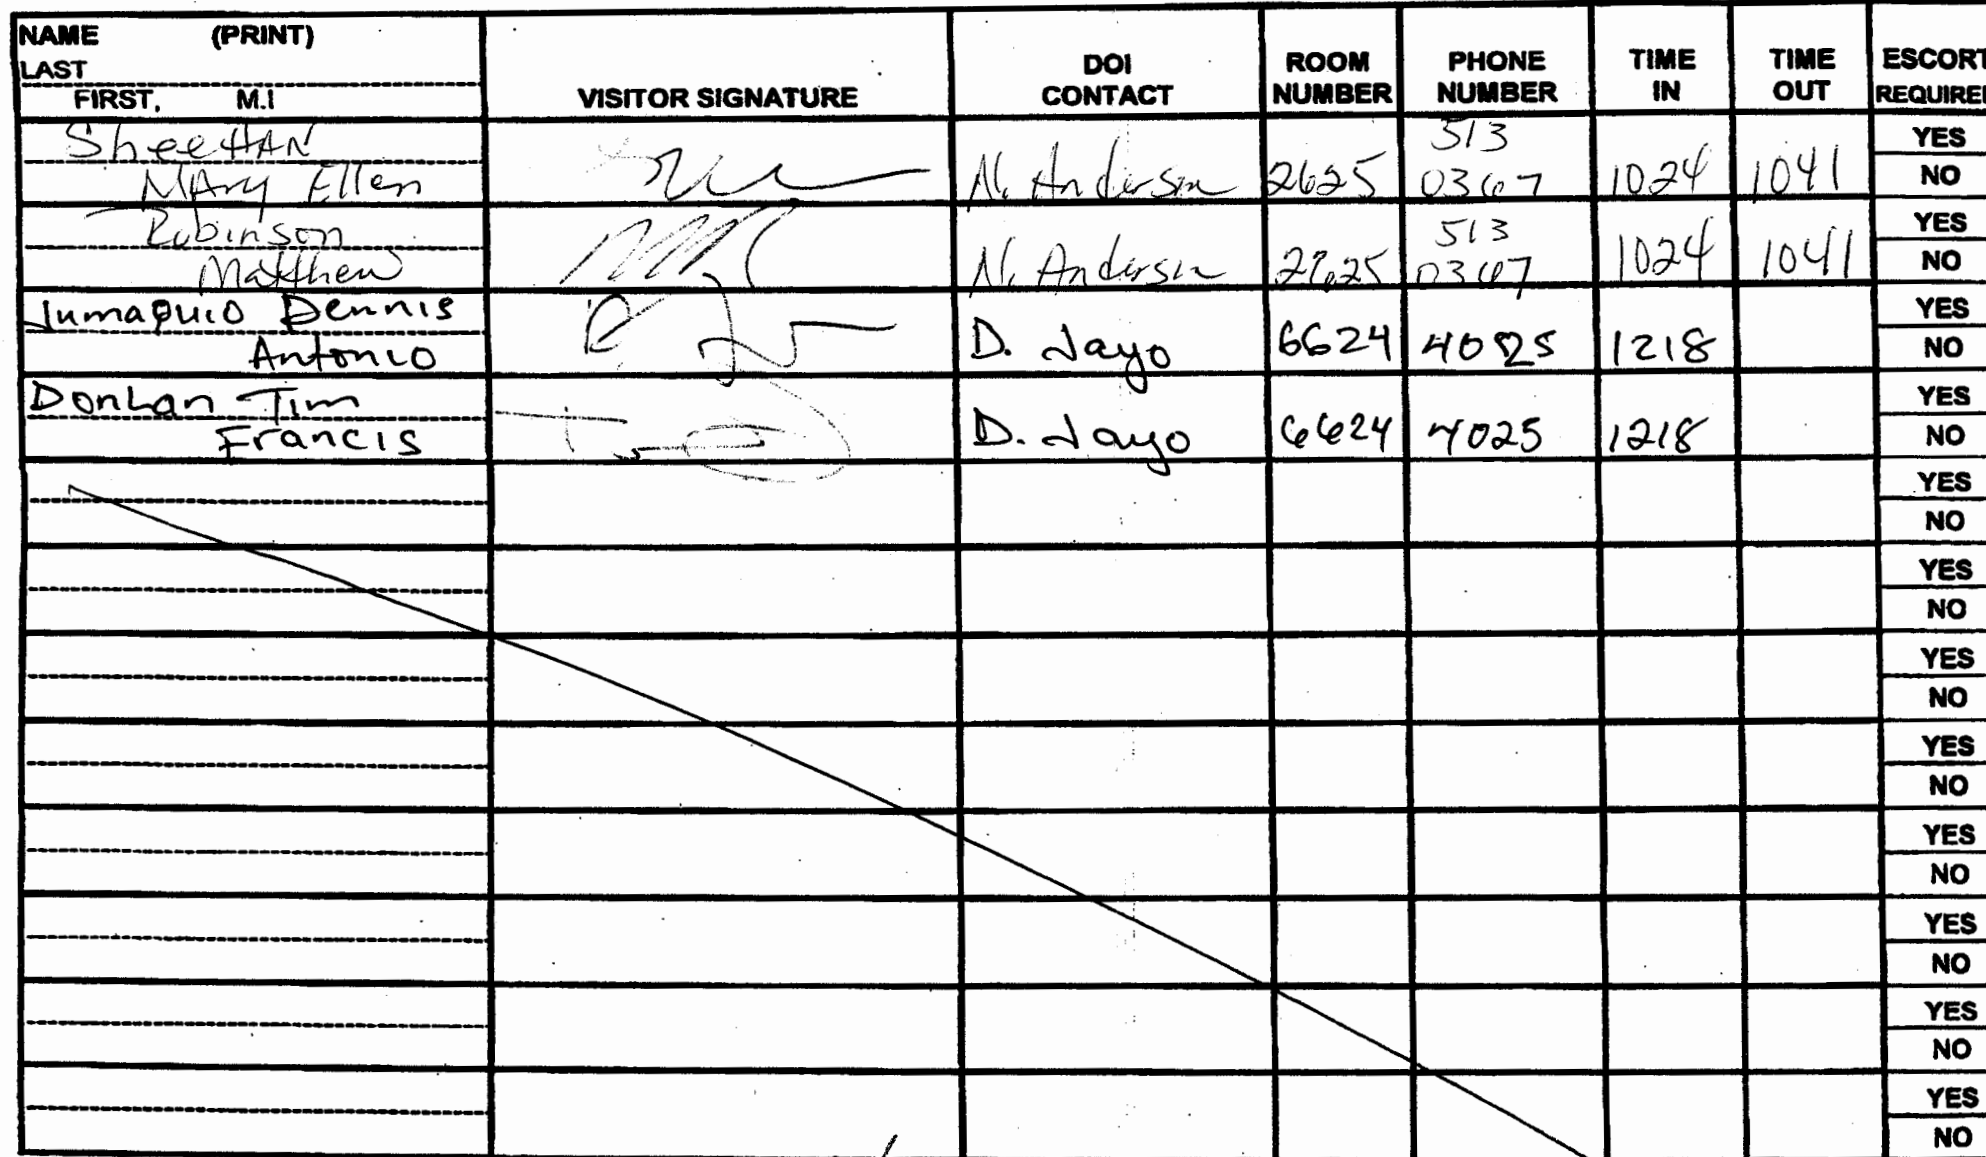 NAME (PRINT)
LAST
FIRST, M.I
VISITOR SIGNATURE
DOI CONTACT
ROOM NUMBER
PHONE NUMBER
TIME IN
TIME OUT
ESCORT REQUIRED
SheeHAN
MAry Ellen
N. Anderson
2625
513
0367
1024
1041
YES
NO
Robinson
Matthew
N. Anderson
2625
513
0367
1024
1041
YES
NO
Jumaquio Dennis
Antonio
D. Jayo
6624
4025
1218
YES
NO
Donlan Tim
Francis
D. Jayo
6624
4025
1218
YES
NO
YES
NO
YES
NO
YES
NO
YES
NO
YES
NO
YES
NO
YES
NO
YES
NO